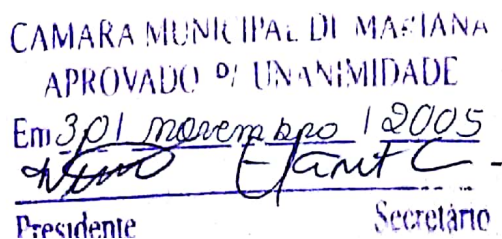 CAMARA MUNICIPAL DE MARIANA
APROVADO P/ UNANIMIDADE
Em 30/ novembro / 2005
Presidente Secretário